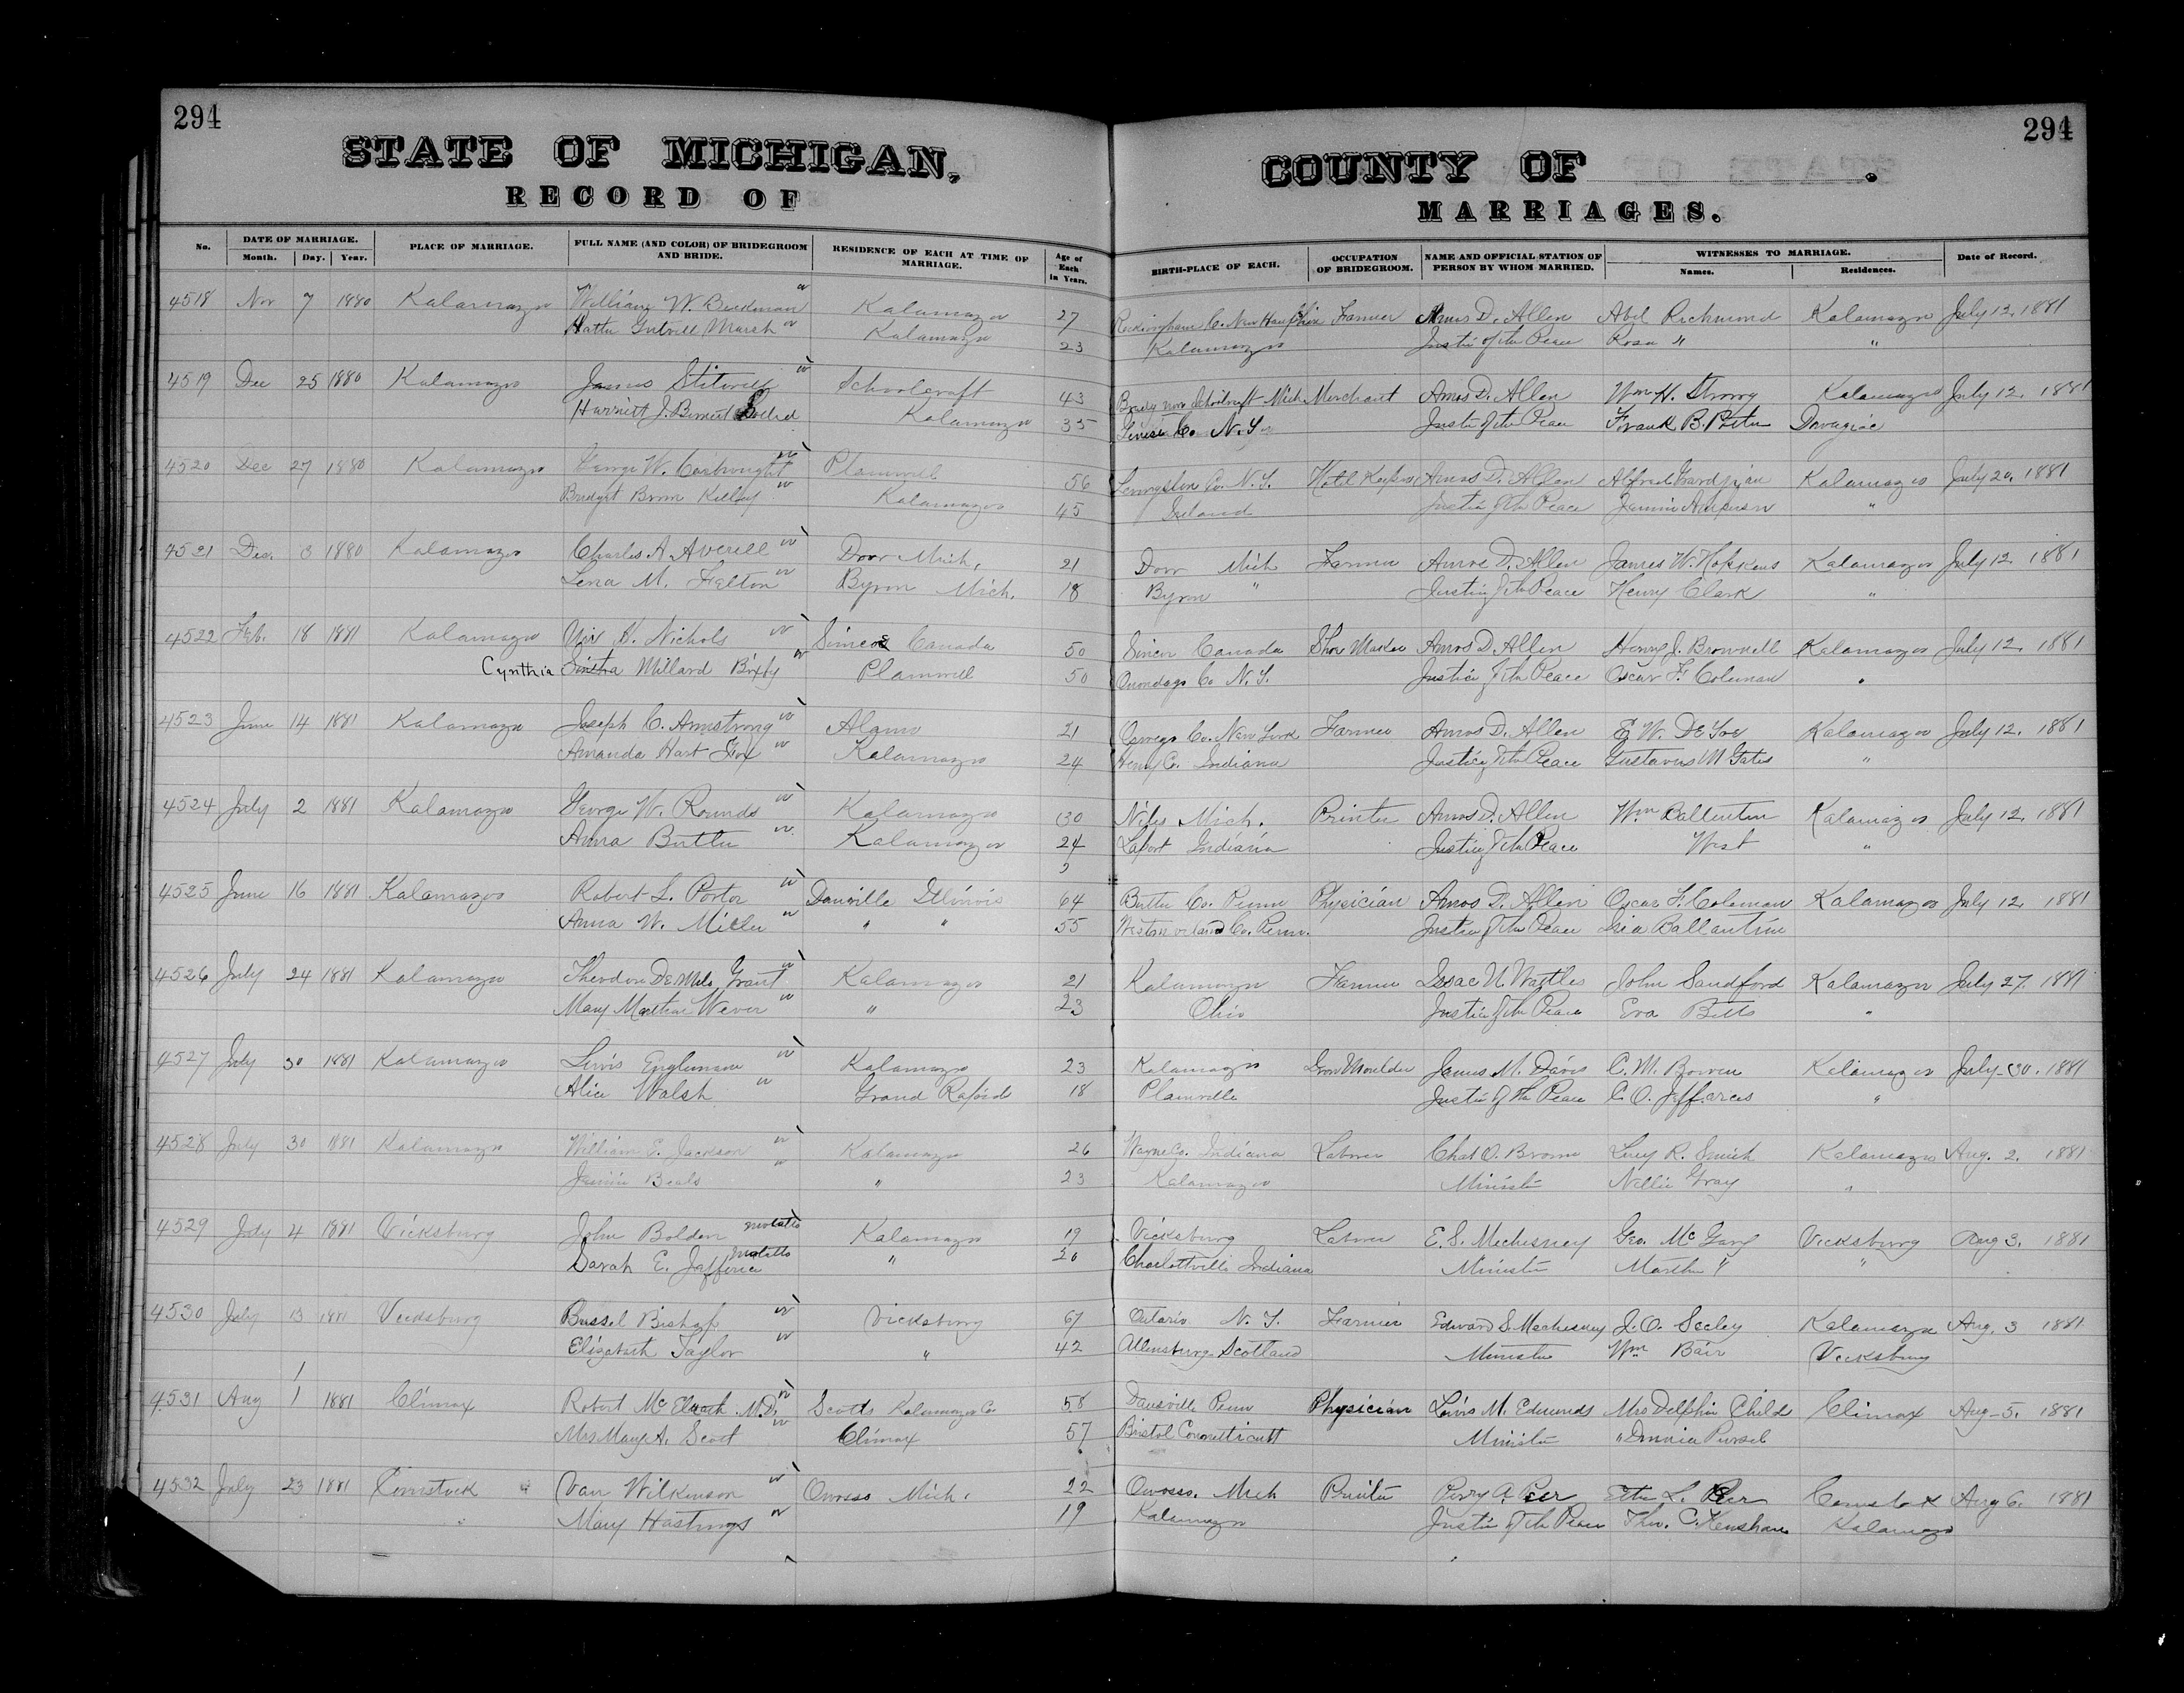 294
294
STATE OF MICHIGAN,
COUNTY OF .
RECORD OF
MARRIAGES.
No. DATE OF MARRIAGE. PLACE OF MARRIAGE. FULL NAME (AND COLOR) OF BRIDEGROOM AND BRIDE. RESIDENCE OF EACH AT TIME OF MARRIAGE. Age of Each in Years. BIRTH-PLACE OF EACH. OCCUPATION OF BRIDEGROOM. NAME AND OFFICIAL STATION OF PERSON BY WHOM MARRIED. WITNESSES TO MARRIAGE. Date of Record.
Month. Day. Year. Names. Residences.
4518 Nov 7 1880 Kalamazoo William W. w Kalamazoo 27 Rockingham C. New Hampshire Farmer Amos D. Allen Abel Richmond Kalamazoo July 12, 1881
Marsh w Kalamazoo 23 Kalamazoo Justice of the Peace Rosa " "
4519 Dec 25 1880 Kalamazoo James w Schoolcraft 43 Brady now Schoolcraft Mich Merchant Amos D. Allen Wm H. Strong Kalamazoo July 12, 1881
Harriett J. Kalamazoo 35 Co. N.Y. Justice of the Peace Frank B. Dowagiac
4520 Dec 27 1880 Kalamazoo George W. Cartwright w Plainwell 56 Livingston Co. N.Y. Hotel Keeper Amos D. Allen Alfred Kalamazoo July 20, 1881
Bridget w Kalamazoo 45 Ireland Justice of the Peace "
4521 Dec. 3 1880 Kalamazoo Charles A. Averill w Dorr Mich. 21 Dorr Mich Farmer Amos D. Allen James W. Hopkins Kalamazoo July 12, 1881
Lena M. Felton w Byron Mich. 18 Byron " Justice of the Peace Henry Clark "
4522 Feb. 18 1881 Kalamazoo H. Nichols w Simcoe Canada 50 Simcoe Canada Shoe Maker Amos D. Allen Henry J. Brownell Kalamazoo July 12, 1881
Cynthia Millard Bixby w Plainwell 50 Onondaga Co N.Y. Justice of the Peace Oscar F. Coleman "
4523 June 14 1881 Kalamazoo Joseph C. Armstrong w Alamo 21 Oswego Co. New York Farmer Amos D. Allen E W. DeYoe Kalamazoo July 12, 1881
Amanda Hart Fox w Kalamazoo 24 Henry C. Indiana Justice of the Peace Gustavus M Gates "
4524 July 2 1881 Kalamazoo George W. Rounds w Kalamazoo 30 Niles Mich. Printer Amos D. Allen Wm Ballentine Kalamazoo July 12, 1881
Anna Butler w Kalamazoo 24 Laport Indiana Justice of the Peace West "
4525 June 16 1881 Kalamazoo Robert L. Porter w Danville Illinois 64 Butler Co. Penn Physician Amos D. Allen Oscar F. Coleman Kalamazoo July 12, 1881
Anna W. Miller w " " 55 Westmoreland Co. Penn. Justice of the Peace Ballantine
4526 July 24 1881 Kalamazoo Theodore DeMils Grant w Kalamazoo 21 Kalamazoo Farmer Isaac N. Wattles John Sandford Kalamazoo July 27, 1881
Mary Martha Wever w " 23 Ohio Justice of the Peace Eva Betts "
4527 July 30 1881 Kalamazoo Lewis Engleman w Kalamazoo 23 Kalamazoo Iron Moulder James M. Davis C. M. Bowen Kalamazoo July 30, 1881
Alice Walsh w Grand Rapids 18 Plainville Justice of the Peace C. O. "
4528 July 30 1881 Kalamazoo William E. Jackson w Kalamazoo 26 Wayne Co. Indiana Laborer Chas O. Brown Lucy R. Smith Kalamazoo Aug. 2. 1881
Jennie Beals w " 23 Kalamazoo Minister Nellie Gray "
4529 July 4 1881 Vicksburg John Bolden Kalamazoo 19 Vicksburg Laborer E. S. Mechesney Geo. Vicksburg Aug 3. 1881
Sarah E. " 20 Charlottville Indiana Minister Martha " "
4530 July 13 1881 Vicksburg Bussel Bishop w Vicksburg 67 Ontario N.Y. Farmer Edward S. Mechesney J. O. Seeley Kalamazoo Aug. 3 1881
Elizabeth Taylor w " 42 Allensburg Scotland Minister Wm Bair Vicksburg
4531 Aug 1 1881 Climax Robert M.D. w Scotts Kalamazoo Co 58 Dansville Penn Physician Lewis M. Edmunds Mrs Delphia Child Climax Aug 5. 1881
Mrs Mary A. Scott w Climax 57 Bristol Connetticutt Minister "
4532 July 23 1881 Comstock Van Wilkinson w Owosso Mich. 22 Owosso. Mich Printer Perry A. Peer L. Peer Comstock Aug 6. 1881
Mary Hastings w 19 Kalamazoo Justice of the Peace Kalamazoo